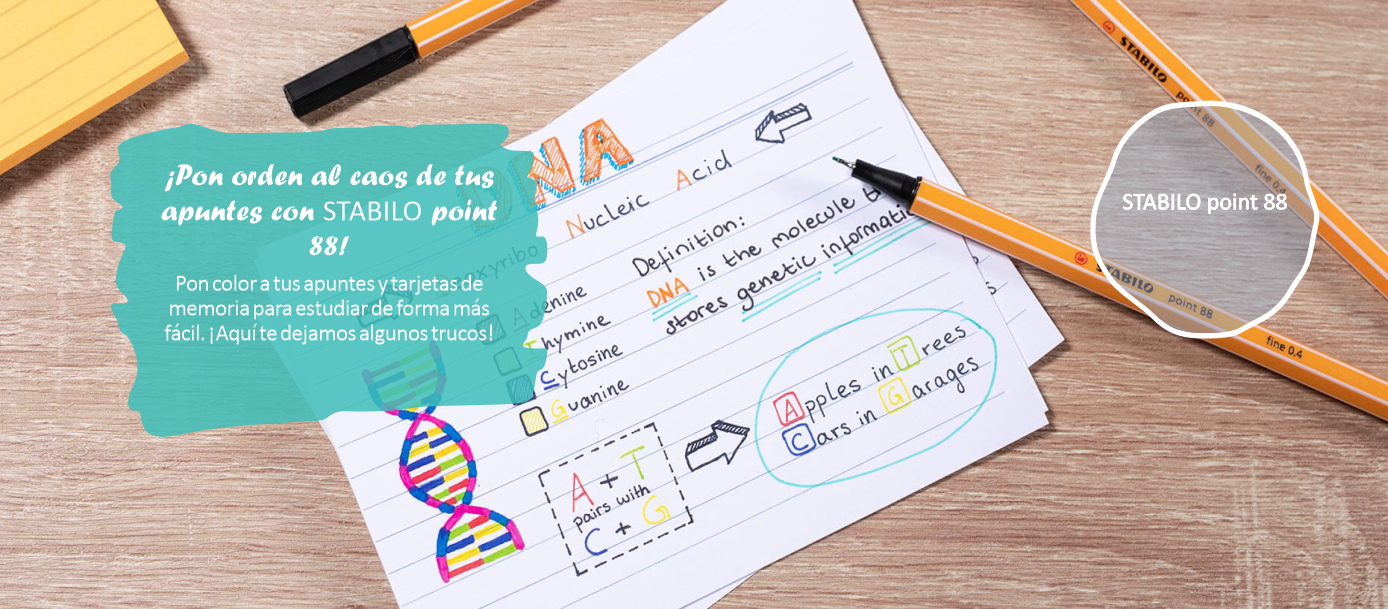 ¡Pon orden al caos de tus
apuntes con STABILO point
88!
Pon color a tus apuntes y tarjetas de
memoria para estudiar de forma más
fácil. ¡Aquí te dejamos algunos trucos!
DNA
Deoxyribo Nucleic Acid
Adenine
Thymine
Cytosine
Guanine
Definition:
DNA is the molecule
stores genetic informatio
A + T
pairs with
C + G
Apples in Trees
Cars in Garages
STABILO point 88
STABILO point 88 fine 0.4
STABILO point 88 fine 0.4